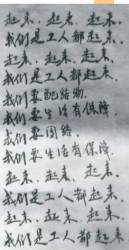 起来，起来，起来，
我们是工人都起来，
起来，起来，起来，
我们是工人都起来，
我们要配给物，
我们要生活有保障，
我们要团结，
我们要生活有保障，
起来，起来，起来，
我们是工人都起来，
起来，起来，起来，
我们是工人都起来